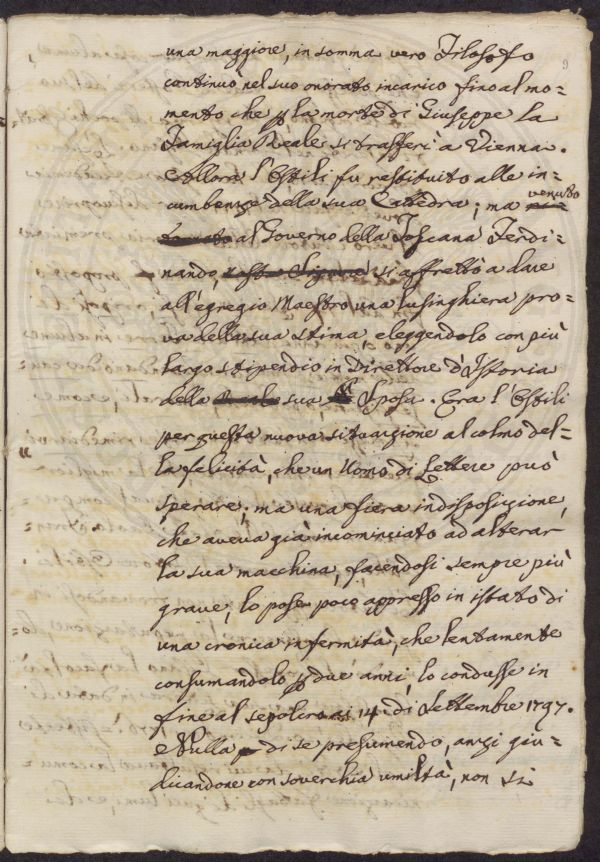 9
una maggiore, in somma vero Filosofo
continuò nel suo onorato incarico fino al mo=
mento che p la morte di Giuseppe la
Famiglia Reale si trasferì a Vienna.
Allora l'Ostili fu restituito alle in=
cumbenze della sua Cattedra; ma venuto
al Governo della Toscana Ferdi=
nando, nostro Signore si affrettò a dare
all'egregio Maestro una lusinghiera pro=
va della sua stima eleggendolo con più
largo stipendio in Direttore d'Istoria
della Reale sua Sposa. Era l'Ostili
per questa nuova situazione al colmo del=
la felicità, che un Uomo di Lettere può
sperare; ma una fiera indisposizione,
che aveva già incominciato ad alterar
la sua macchina, facendosi sempre più
grave, lo pose poco appresso in istato di
una cronica infermità, che lentamente
consumandolo p due anni, lo condusse in
fine al sepolcro ai 14 di Settembre 1797.
e Nulla di se presumendo, anzi giu=
dicandone con soverchia umiltà, non si